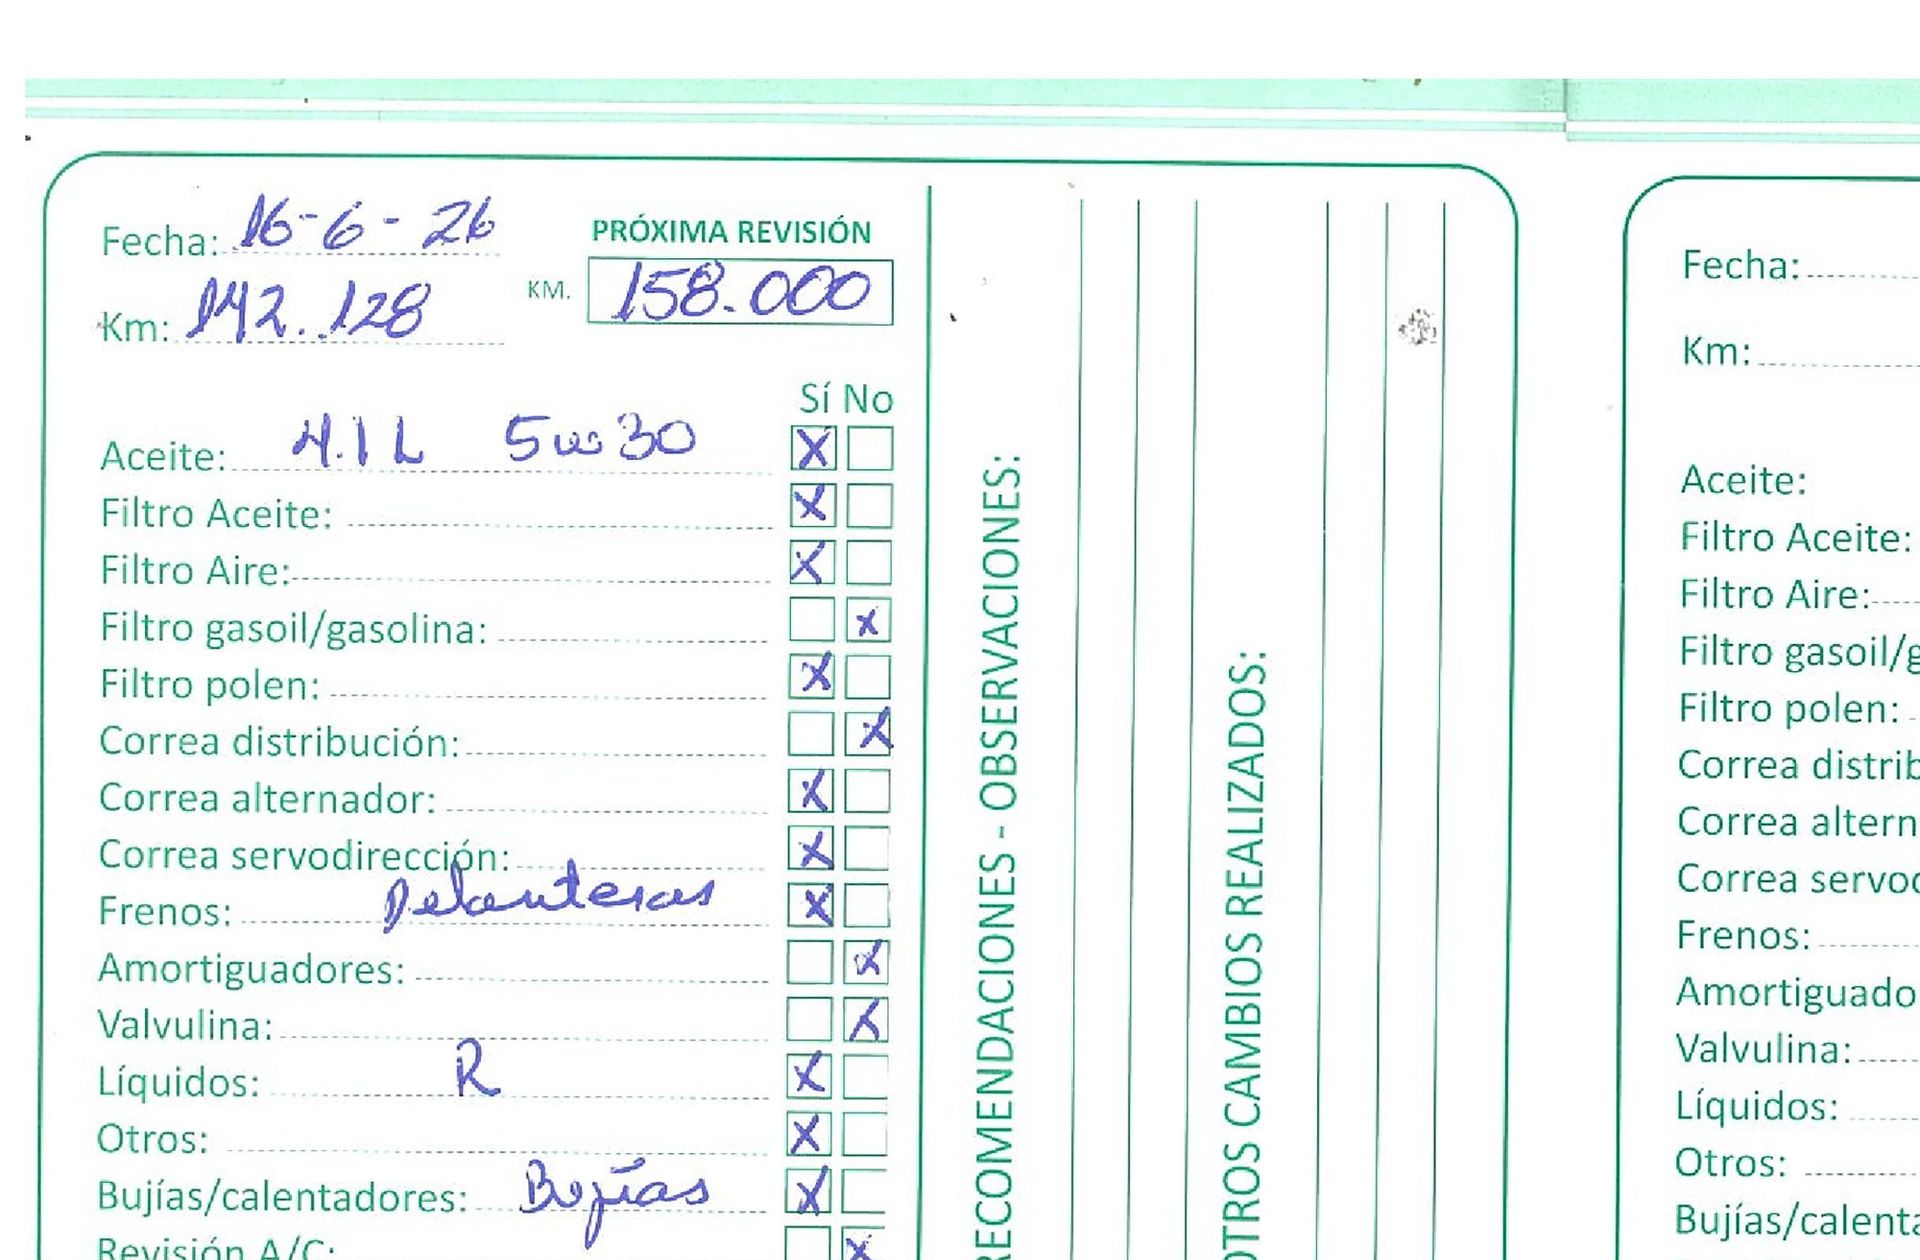 Fecha: 16-6-26
PRÓXIMA REVISIÓN
Km: 142.128
KM. 158.000
Sí No
Aceite: 4.1 L 5w30 X
Filtro Aceite: X
Filtro Aire: X
Filtro gasoil/gasolina: X
Filtro polen: X
Correa distribución: X
Correa alternador: X
Correa servodirección: X
Frenos: Delanteras X
Amortiguadores: X
Valvulina: X
Líquidos: R X
Otros: X
Bujías/calentadores: Bujías X
Revisión A/C: X
RECOMENDACIONES - OBSERVACIONES:
OTROS CAMBIOS REALIZADOS:
Fecha:
Km:
Aceite:
Filtro Aceite:
Filtro Aire:
Filtro gasoil/g
Filtro polen:
Correa distrib
Correa altern
Correa servod
Frenos:
Amortiguado
Valvulina:
Líquidos:
Otros:
Bujías/calenta